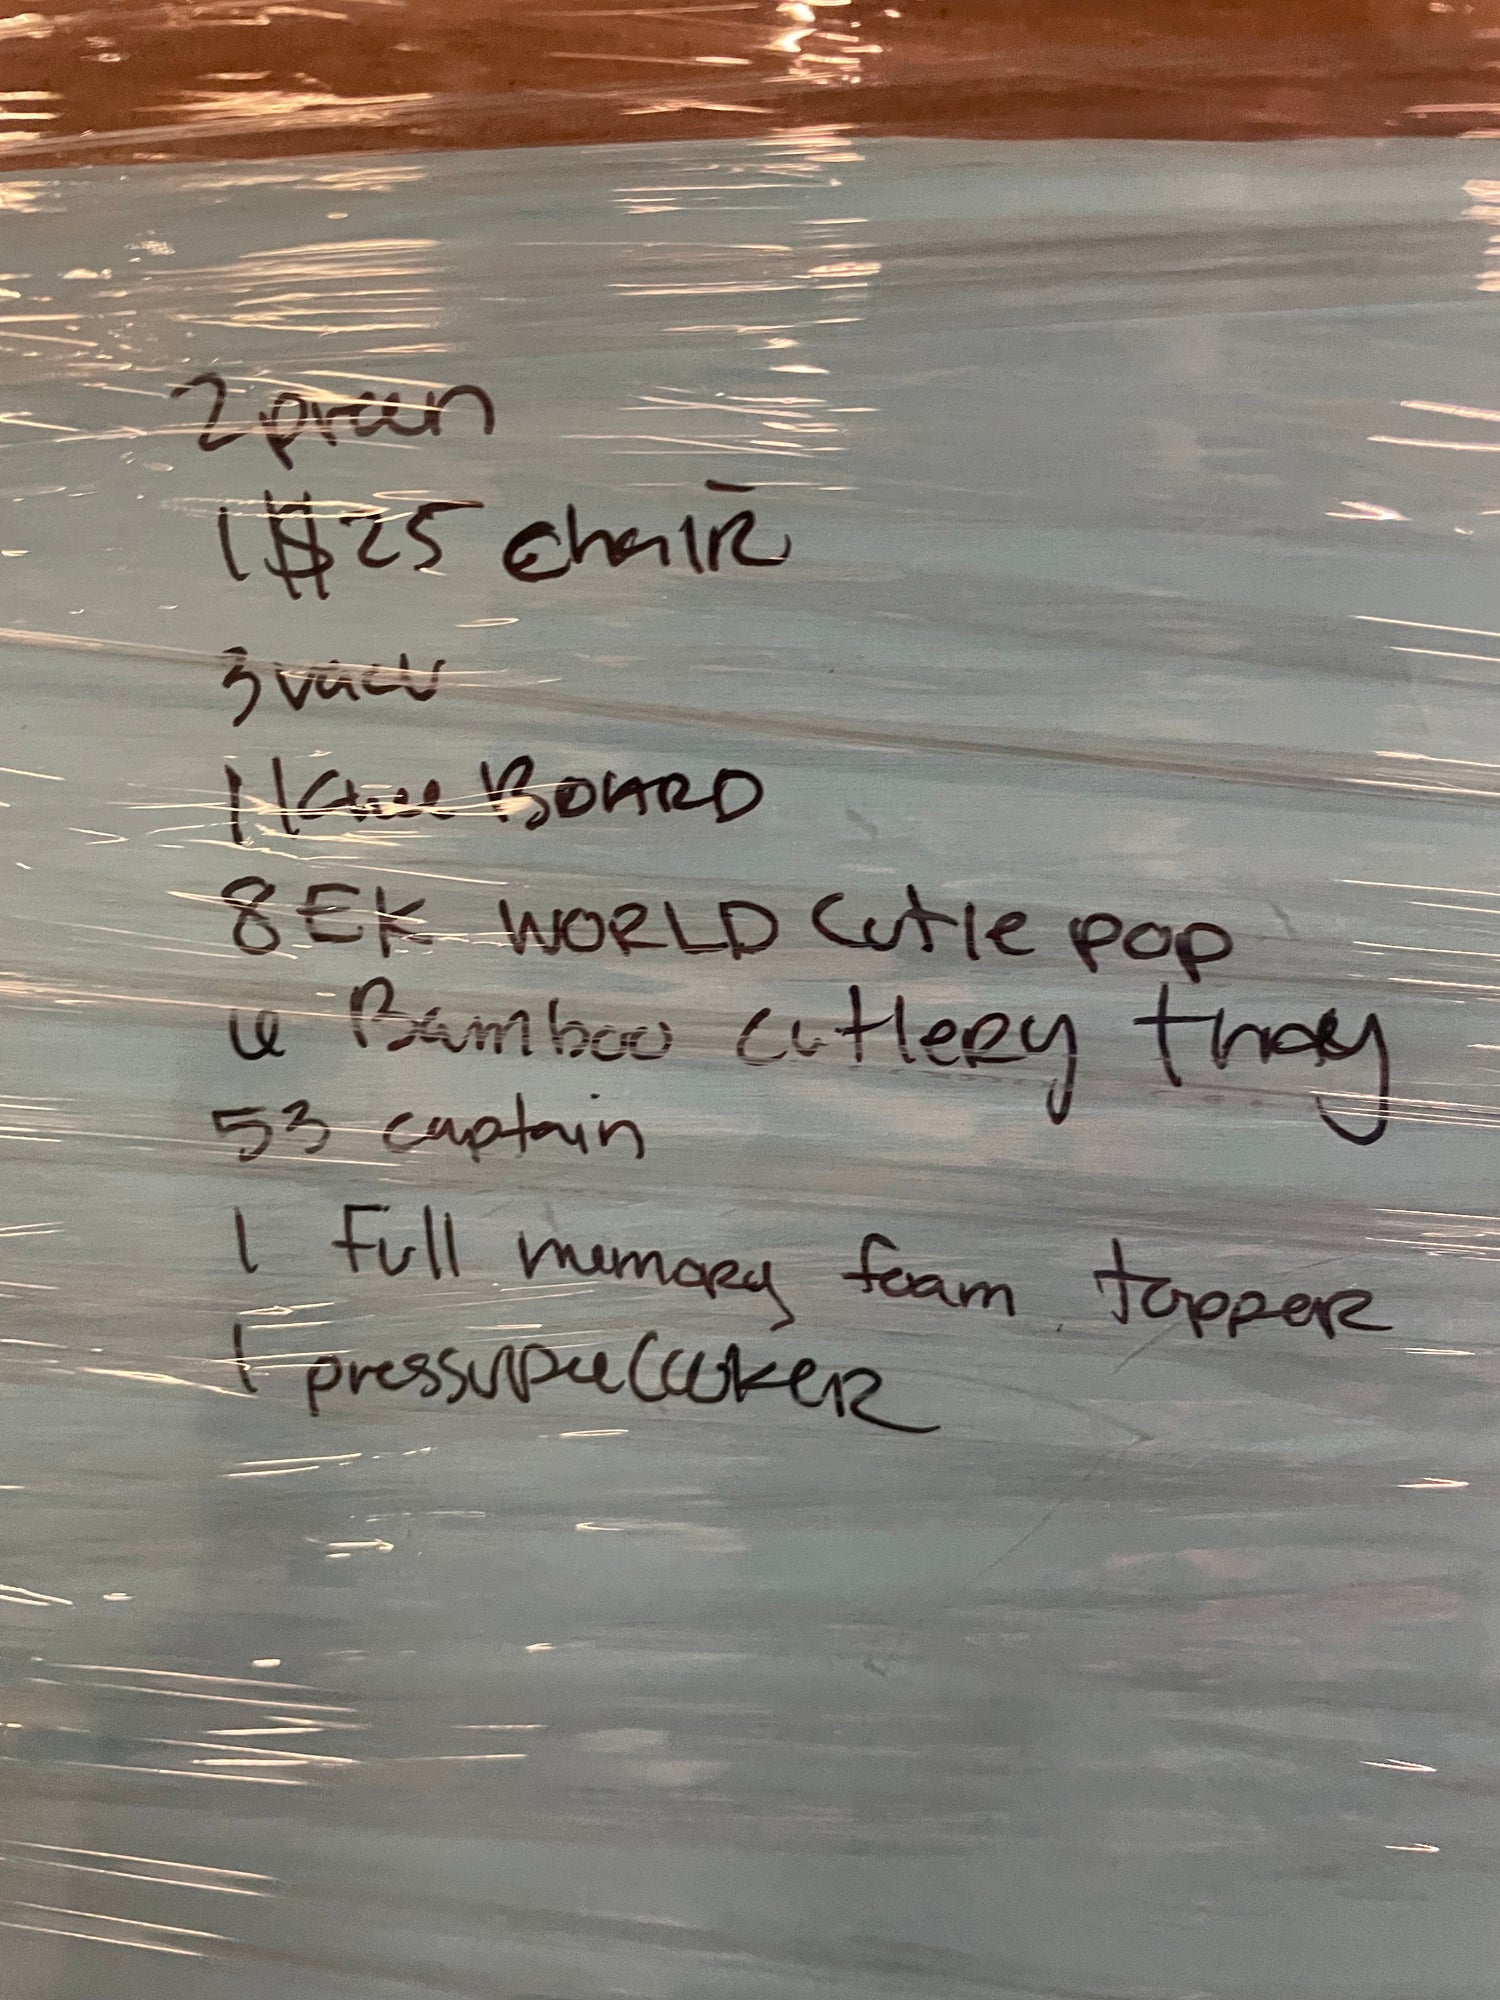 2
1 $25 chair
3
1 BOARD
8 EK WORLD Cutle pop
6 Bamboo cutlery tray
53 captain
1 Full memory foam topper
1 pressure Cooker